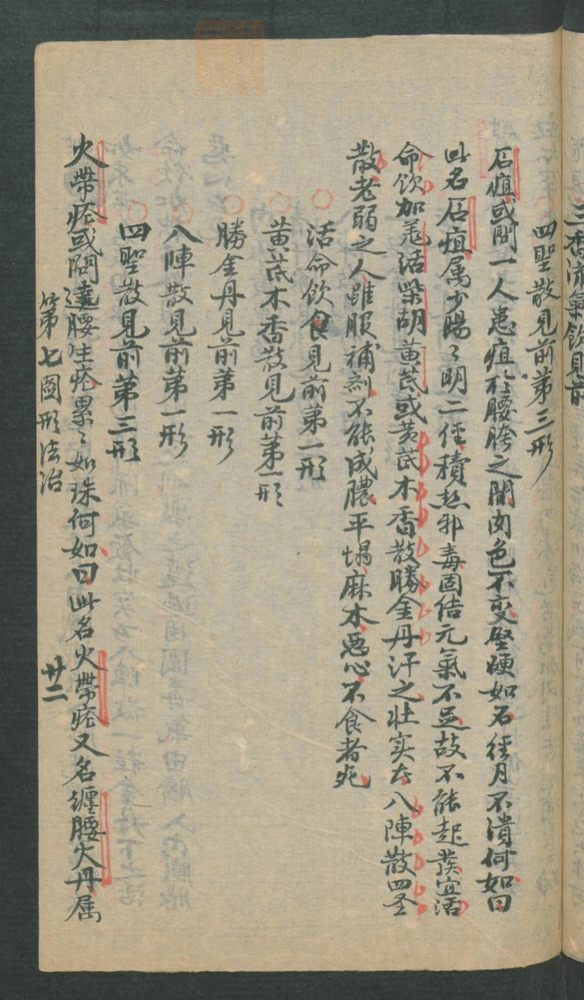 三香流氣飲見前
四聖散見前第三形
石疽或問一人患疽於腰胯之間肉色不变堅硬如石経月不潰何如曰
此名石疽属少陽々明二経積热邪毒固结元氣不足故不能起蕟宜活
命飲加羗活柴胡黄芪或黄芪木香散勝金丹汗之壮实者八陣散四圣
散老弱之人雖服補剤不能成膿平塌麻木恶心不食者死
活命飲食見前第一形
黄芪木香散見前第一形
勝金丹見前第一形
八陣散見前第一形
四聖散見前第三形
火帶疮或問遶腰生疮累々如珠何如曰此名火帶疮又名纏腰火丹属
第七圖形法治
廿二